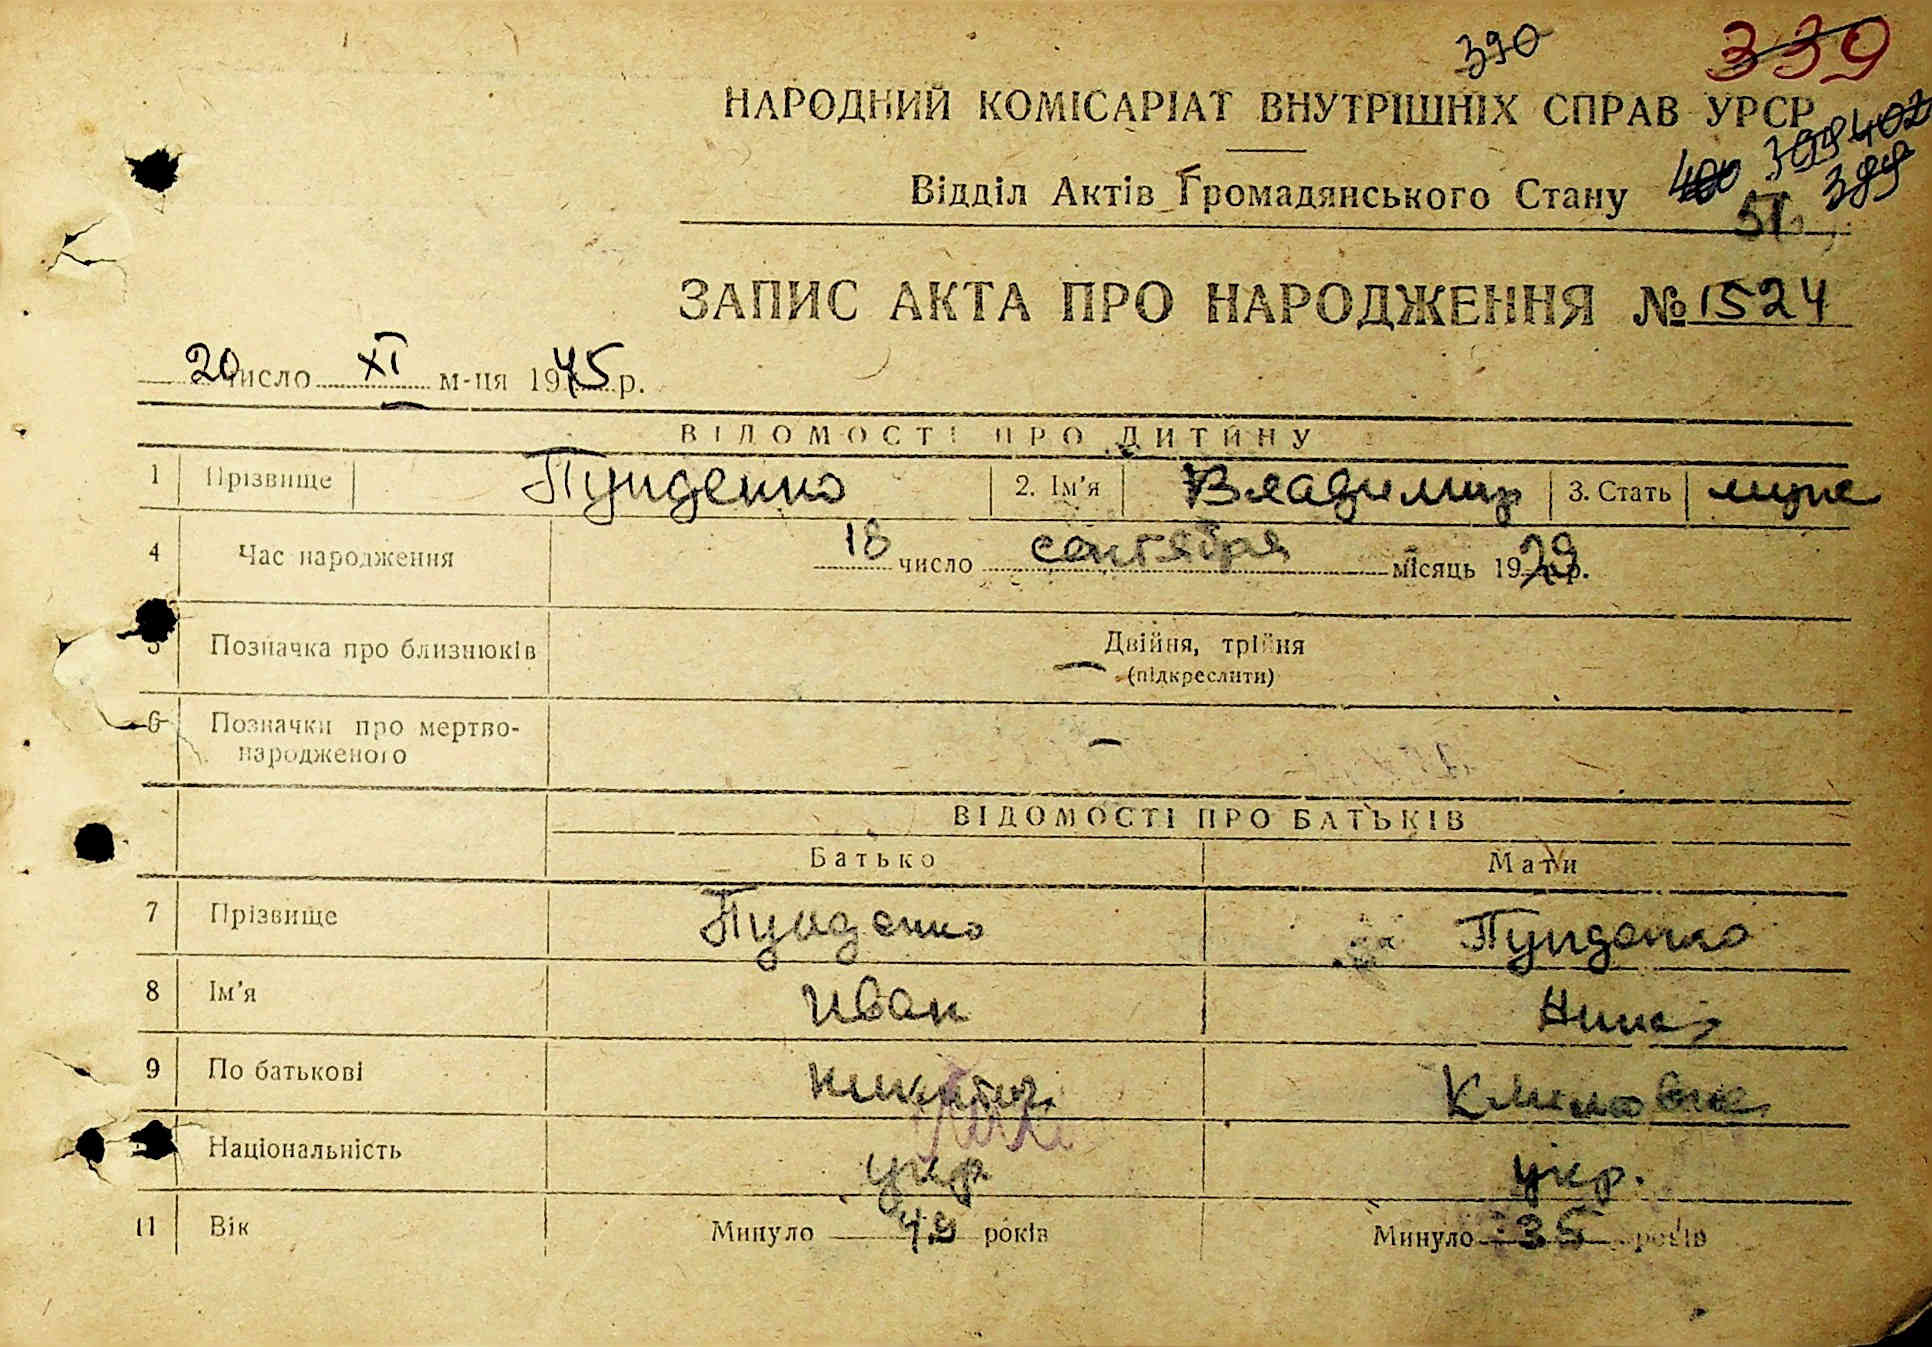 390 339
НАРОДНИЙ КОМІСАРІАТ ВНУТРІШНІХ СПРАВ УРСР
400 398 402
Відділ Актів Громадянського Стану 389
51
ЗАПИС АКТА ПРО НАРОДЖЕННЯ № 1524
20 число XI м-ця 1945 р.
ВІДОМОСТІ ПРО ДИТИНУ
1 Прізвище Пунденко 2. Ім'я Владимир 3. Стать муж
4 Час народження 18 число сентября місяць 1929 р.
5 Позначка про близнюків Двійня, трійня
(підкреслити)
6 Позначки про мертво-
народженого –
ВІДОМОСТІ ПРО БАТЬКІВ
Батько Мати
7 Прізвище Пунденко Пунденко
8 Ім'я Иван Нина
9 По батькові Никит. Климовна
Національність укр укр.
11 Вік Минуло 49 років Минуло 35 років